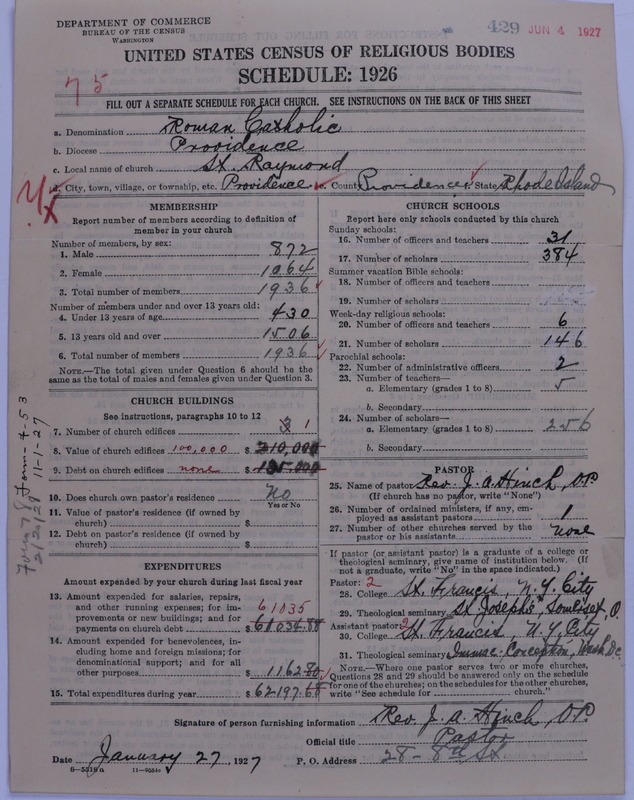 DEPARTMENT OF COMMERCE
BUREAU OF THE CENSUS
WASHINGTON
429 JUN 4 1927
UNITED STATES CENSUS OF RELIGIOUS BODIES
SCHEDULE: 1926
75
FILL OUT A SEPARATE SCHEDULE FOR EACH CHURCH. SEE INSTRUCTIONS ON THE BACK OF THIS SHEET
a. Denomination Roman Catholic
b. Diocese Providence
c. Local name of church St. Raymond
d. City, town, village, or township, etc. Providence e. County Providence f. State Rhode Island
MEMBERSHIP
Report number of members according to definition of
member in your church
Number of members, by sex:
1. Male 872
2. Female 1064
3. Total number of members 1936
Number of members under and over 13 years old:
4. Under 13 years of age 430
5. 13 years old and over 1506
6. Total number of members 1936
NOTE.—The total given under Question 6 should be
same as the total of males and females given under Question 3.
CHURCH BUILDINGS
See instructions, paragraphs 10 to 12
7. Number of church edifices 3 1
8. Value of church edifices 100,000 $ 210,000
9. Debt on church edifices none $ 195,000
10. Does church own pastor's residence No
Yes or No
11. Value of pastor's residence (if owned by
church) $
12. Debt on pastor's residence (if owned by
church) $
EXPENDITURES
Amount expended by your church during last fiscal year
13. Amount expended for salaries, repairs,
and other running expenses; for im-
provements or new buildings; and for
payments on church debt 61035 $ 61034.88
14. Amount expended for benevolences, in-
cluding home and foreign missions; for
denominational support; and for all
other purposes $ 1162.80
15. Total expenditures during year $ 62197.68
CHURCH SCHOOLS
Report here only schools conducted by this church
Sunday schools:
16. Number of officers and teachers 31
17. Number of scholars 384
Summer vacation Bible schools:
18. Number of officers and teachers
19. Number of scholars
Week-day religious schools:
20. Number of officers and teachers 6
21. Number of scholars 146
Parochial schools:
22. Number of administrative officers 2
23. Number of teachers—
a. Elementary (grades 1 to 8) 5
b. Secondary
24. Number of scholars—
a. Elementary (grades 1 to 8) 256
b. Secondary
PASTOR
25. Name of pastor Rev. J. A. Hinch, OP.
(If church has no pastor, write "None")
26. Number of ordained ministers, if any, em-
ployed as assistant pastors 1
27. Number of other churches served by the
pastor or his assistants none
If pastor (or assistant pastor) is a graduate of a college or
theological seminary, give name of institution below. (If
not a graduate, write "No" in the space indicated.)
Pastor: 2
28. College St. Francis, N.Y. City
29. Theological seminary St. Joseph's, Somerset, O.
Assistant pastor: 2
30. College St. Frances, N.Y. City
31. Theological seminary Immac. Conception, Wash. D.C.
NOTE.—Where one pastor serves two or more churches,
Questions 28 and 29 should be answered only on the schedule
for one of the churches; on the schedules for the other churches,
write "See schedule for church."
Signature of person furnishing information Rev. J. A. Hinch, OP.
Official title Pastor
Date January 27, 1927 P. O. Address 28 - 8th St.